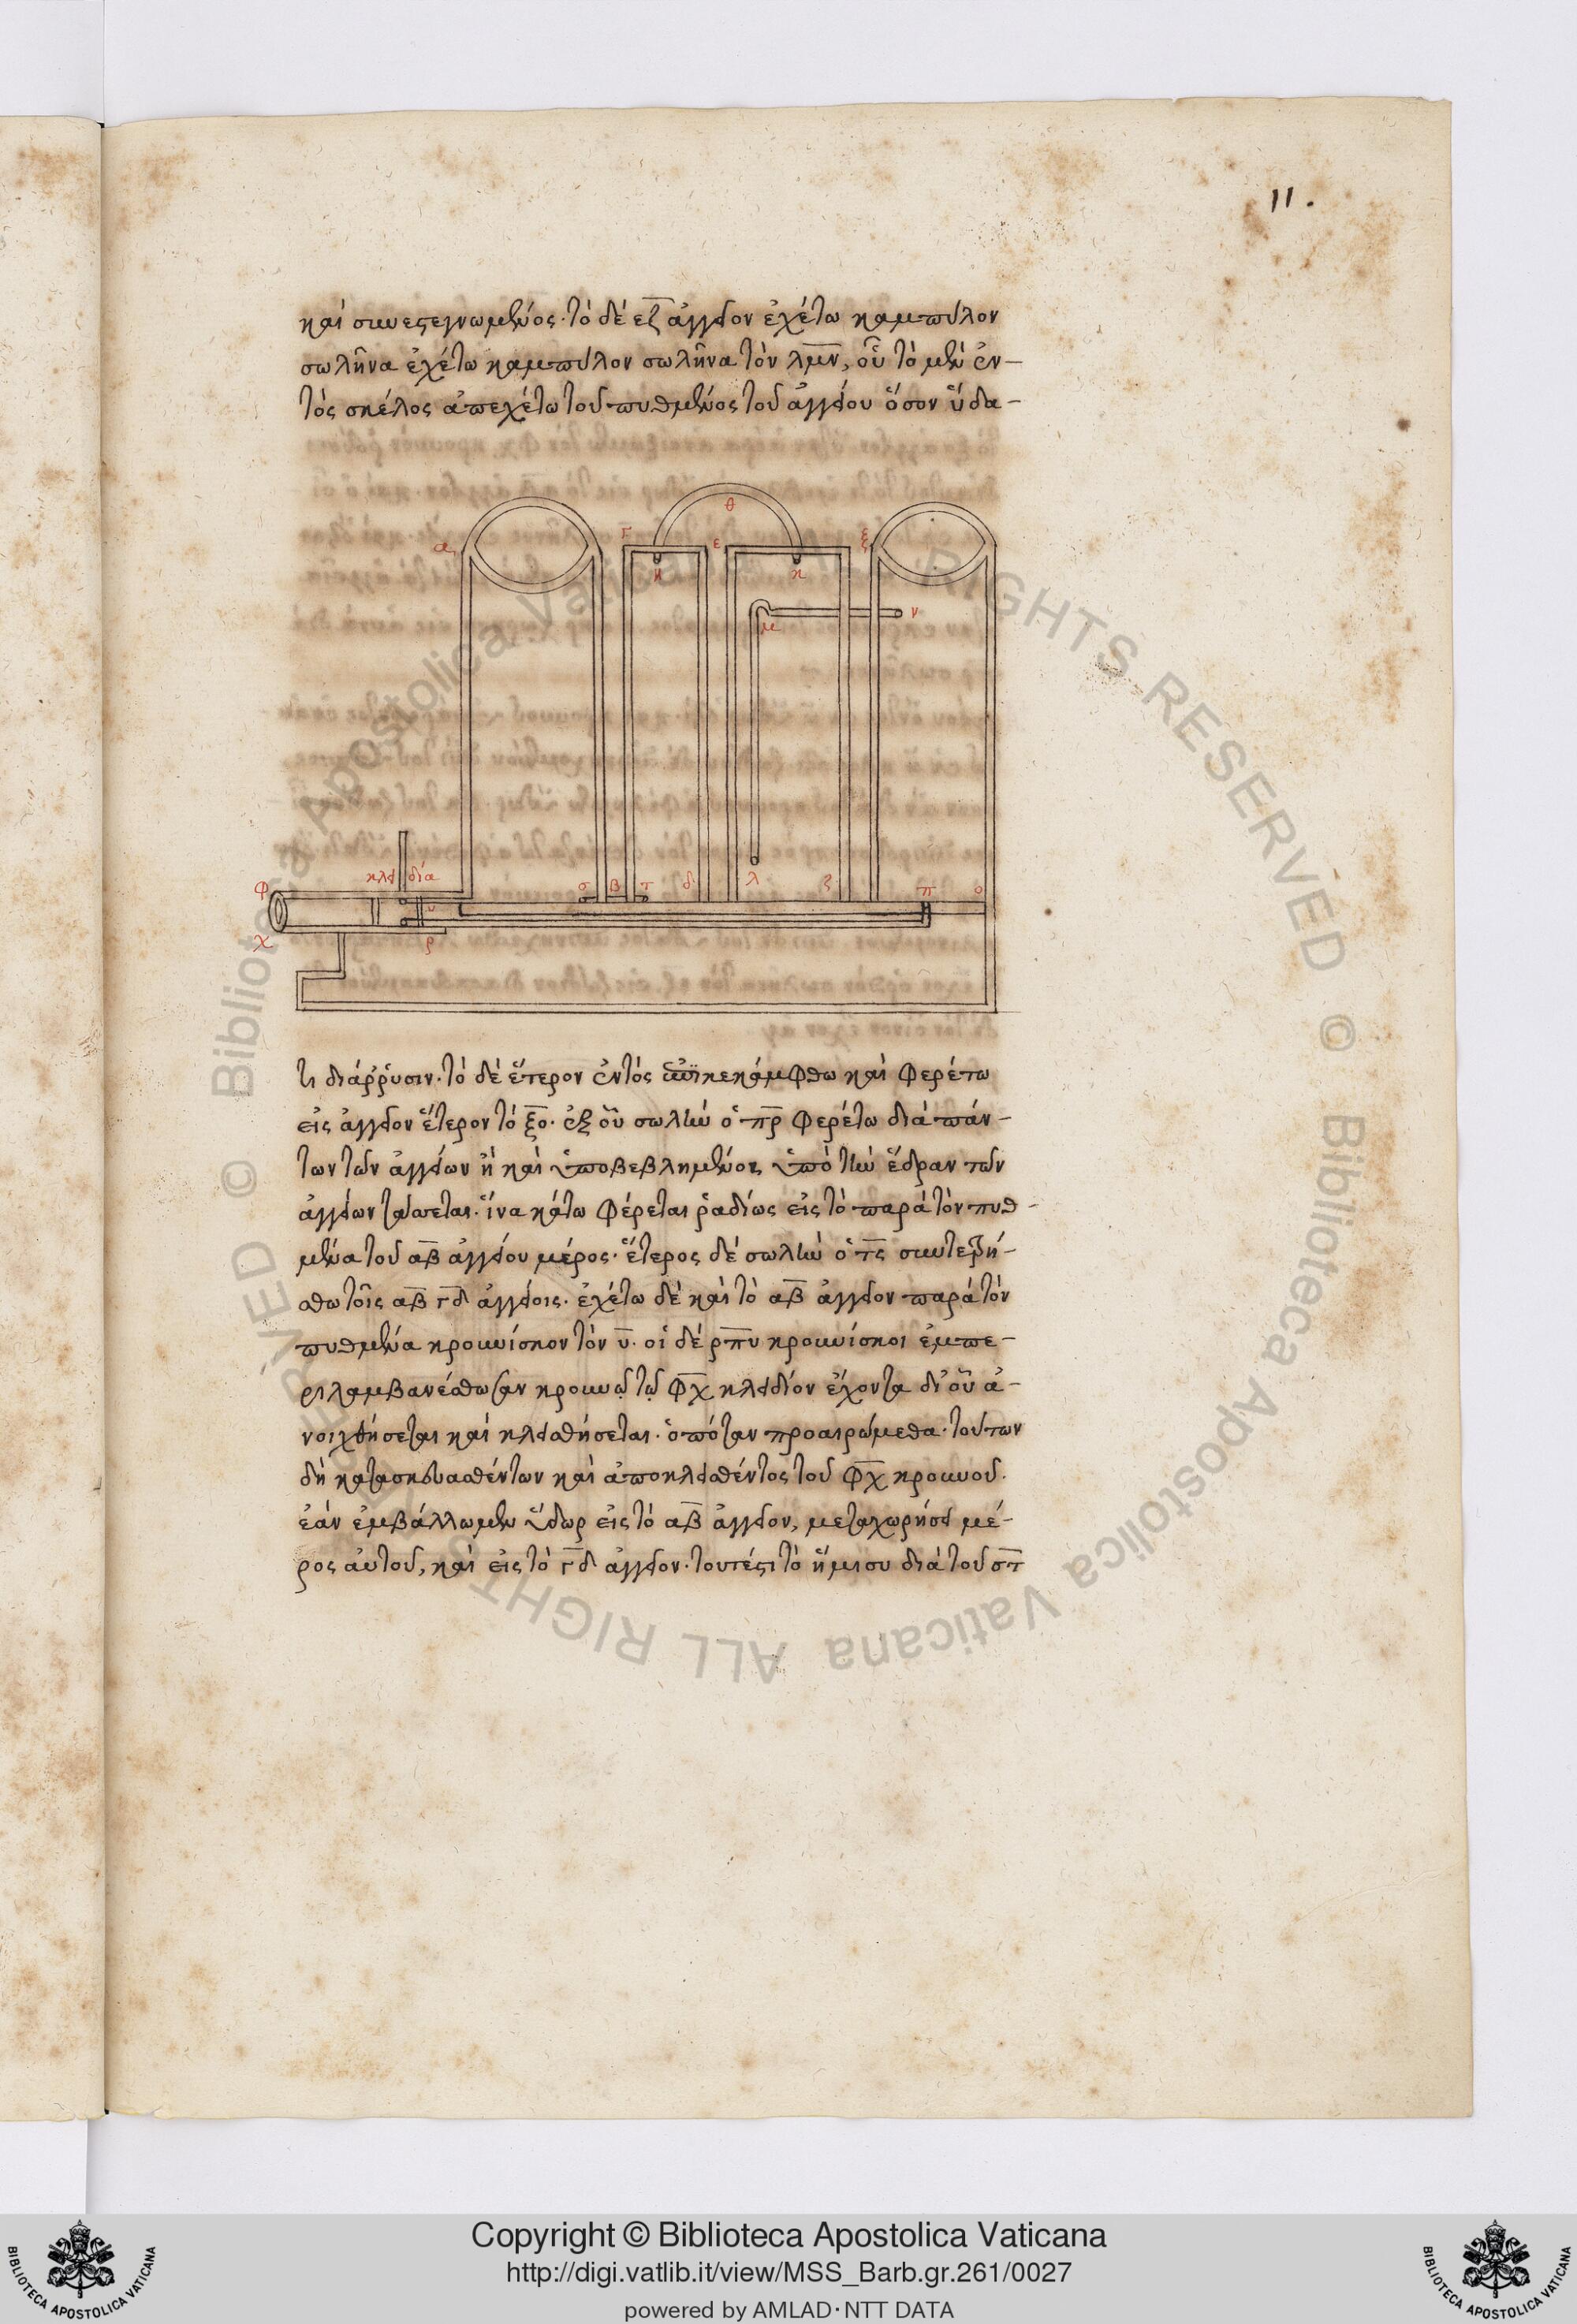 11.
καὶ συνεστεγνωμένος· τὸ δὲ εζ ἀγγεῖον ἐχέτω καμπύλον
σωλῆνα ἐχέτω καμπύλον σωλῆνα τὸν λμν, οὗ τὸ μὲν ἐν-
τὸς σκέλος ἀπεχέτω τοῦ πυθμένος τοῦ ἀγγείου ὅσον ὕδα-
θ
α Γ ε ξ
η κ
μ ν
κλει διά
φ σ β τ δ λ ζ π ο
υ
χ ρ
τι διάῤῥυσιν· τὸ δὲ ἕτερον ἐντὸς ἐπικεκάμφθω καὶ φερέτω
εἰς ἀγγεῖον ἕτερον τὸ ξο· ἐξ οὗ σωλὴν ὁ πρ φερέτω διὰ πάν-
των τῶν ἀγγείων ἢ καὶ ὑποβεβλημένος ὑπὸ τὴν ἕδραν τῶν
ἀγγείων ἵνα κάτω φέρεται ῥαδίως εἰς τὸ παρὰ τὸν πυθ-
μένα τοῦ αβ ἀγγείου μέρος· ἕτερος δὲ σωλὴν ὁ τς συντετρή-
σθω τοῖς αβ γδ ἀγγείοις· ἐχέτω δὲ καὶ τὸ αβ ἀγγεῖον παρὰ τὸν
πυθμένα κρουνίσκον τὸν υ· οἱ δὲ ρπυ κρουνίσκοι ἐμπε-
ριλαμβανέσθωσαν κρουνῷ τῷ φχ κλειδίον ἔχοντα δι' οὗ ἀ-
νοιχθήσεται καὶ κλεισθήσεται· ὁπόταν προαιρώμεθα· τούτων
δὴ κατασκευασθέντων καὶ ἀποκλεισθέντος τοῦ φχ κρουνοῦ.
ἐὰν ἐμβάλλωμεν ὕδωρ εἰς τὸ αβ ἀγγεῖον, μεταχωρήσει μέ-
ρος αὐτοῦ, καὶ εἰς τὸ γδ ἀγγεῖον· τουτέστι τὸ ἥμισυ διὰ τοῦ στ
Copyright © Biblioteca Apostolica Vaticana
http://digi.vatlib.it/view/MSS_Barb.gr.261/0027
powered by AMLAD·NTT DATA